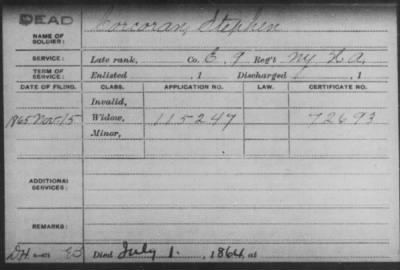 DEAD
NAME OF SOLDIER: Corcoran, Stephen
SERVICE: Late rank, Co. E. 9 Reg't NY H. A.
TERM OF SERVICE: Enlisted , 1 Discharged , 1
DATE OF FILING. CLASS. APPLICATION NO. LAW. CERTIFICATE NO.
Invalid,
1865 Nov. 15 Widow, 115247 72693
Minor,
ADDITIONAL SERVICES:
REMARKS:
Died July 1. , 1864, at